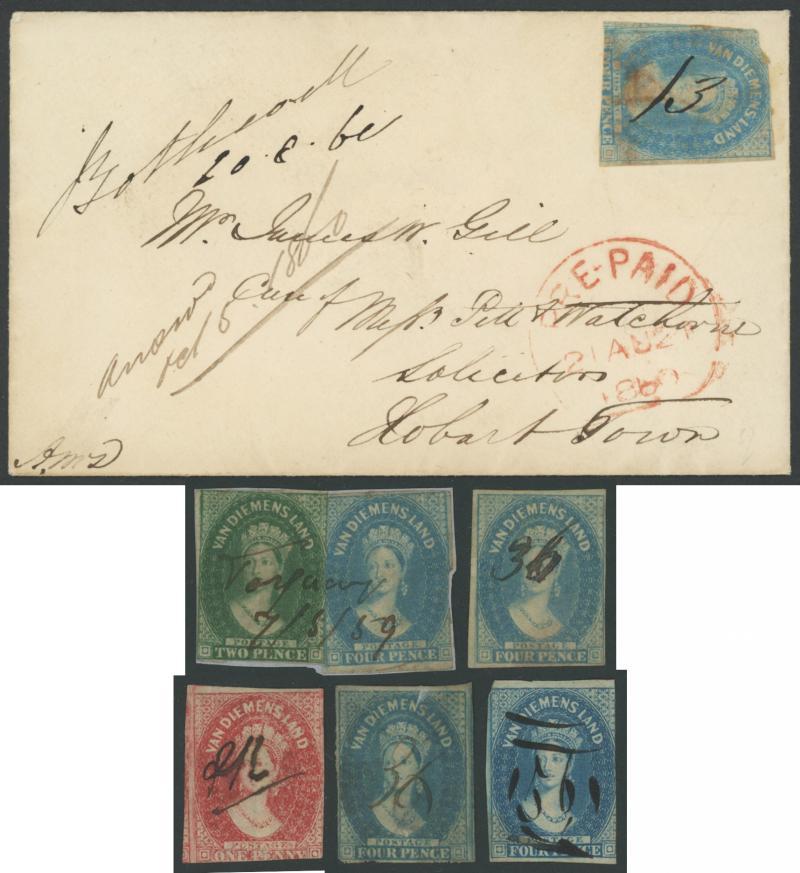 Bothwell
20.8.60
VAN DIEMENS LAND
FOUR PENCE
13
Mr. James W. Gill
Care of Messrs. Pitt & Watchorne
Solicitors
Hobart Town
PRE-PAID
21 AU 21
1860
answd
oct 5
1860
VAN DIEMENS LAND
Torquay
7/5/59
POSTAGE
TWO PENCE
VAN DIEMENS LAND
POSTAGE
FOUR PENCE
VAN DIEMENS LAND
36
POSTAGE
FOUR PENCE
VAN DIEMENS LAND
POSTAGE
ONE PENNY
VAN DIEMENS LAND
36
POSTAGE
FOUR PENCE
VAN DIEMENS LAND
56
POSTAGE
FOUR PENCE